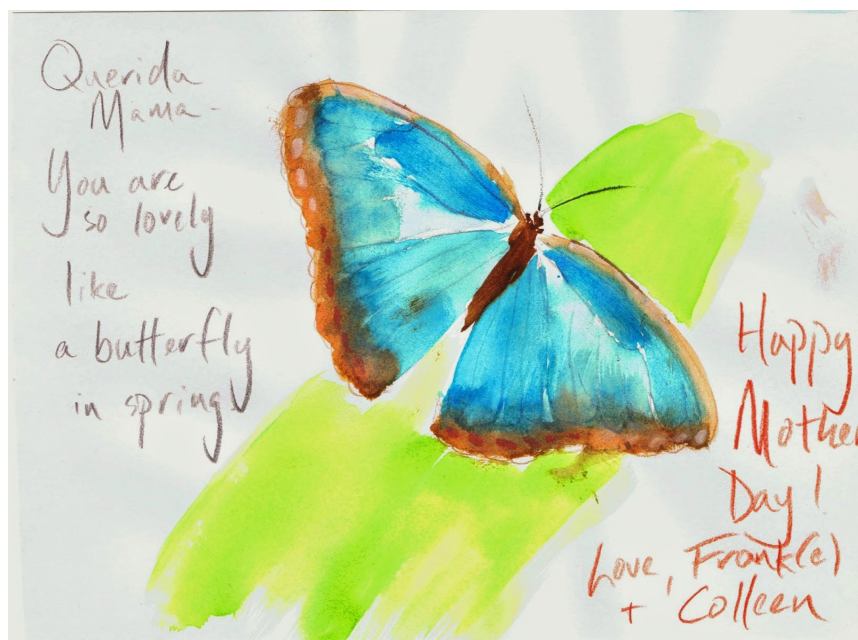 Querida
Mama -
You are
so lovely
like
a butterfly
in spring
Happy
Mother
Day!
Love, Frank(e)
+ Colleen